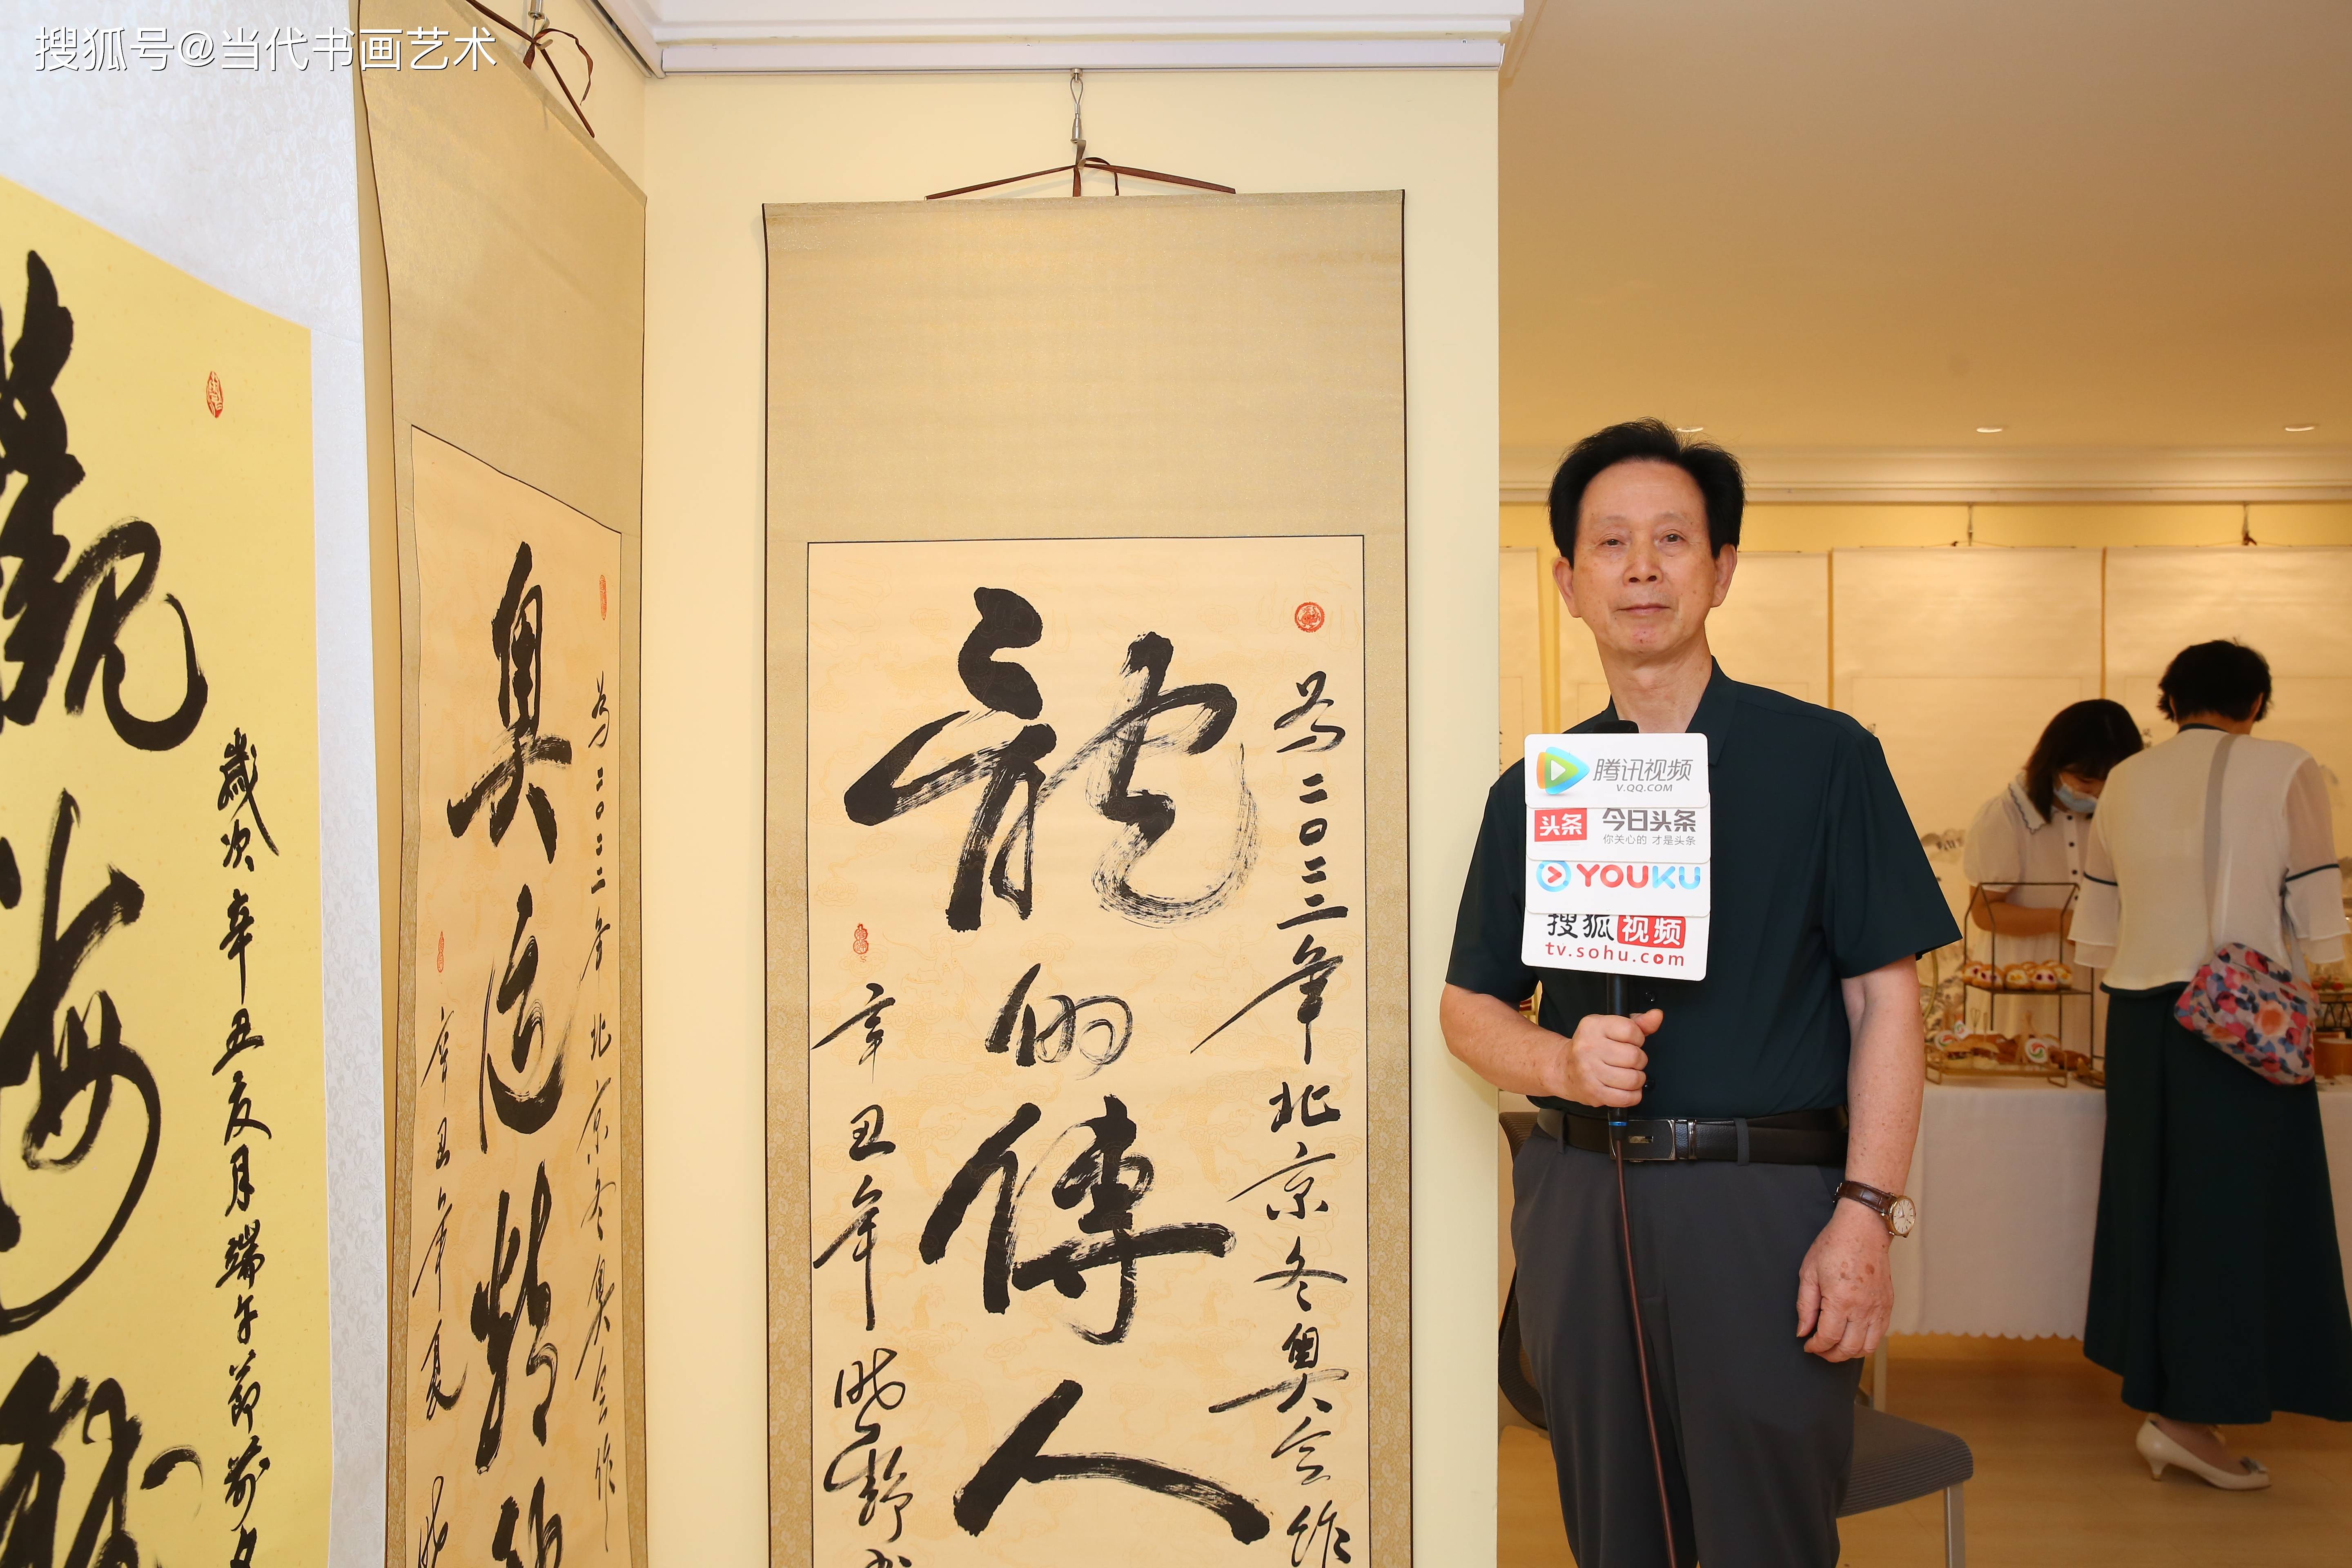 搜狐号@当代书画艺术
观海
歲次辛丑夏月端午节前夕
奥运精神
为二〇二二年北京冬奥会作
辛丑年夏
龍的傳人
为二〇二二年北京冬奥会作
辛丑年
腾讯视频
V.QQ.COM
头条 今日头条
你关心的 才是头条
YOUKU
搜狐视频
tv.sohu.com